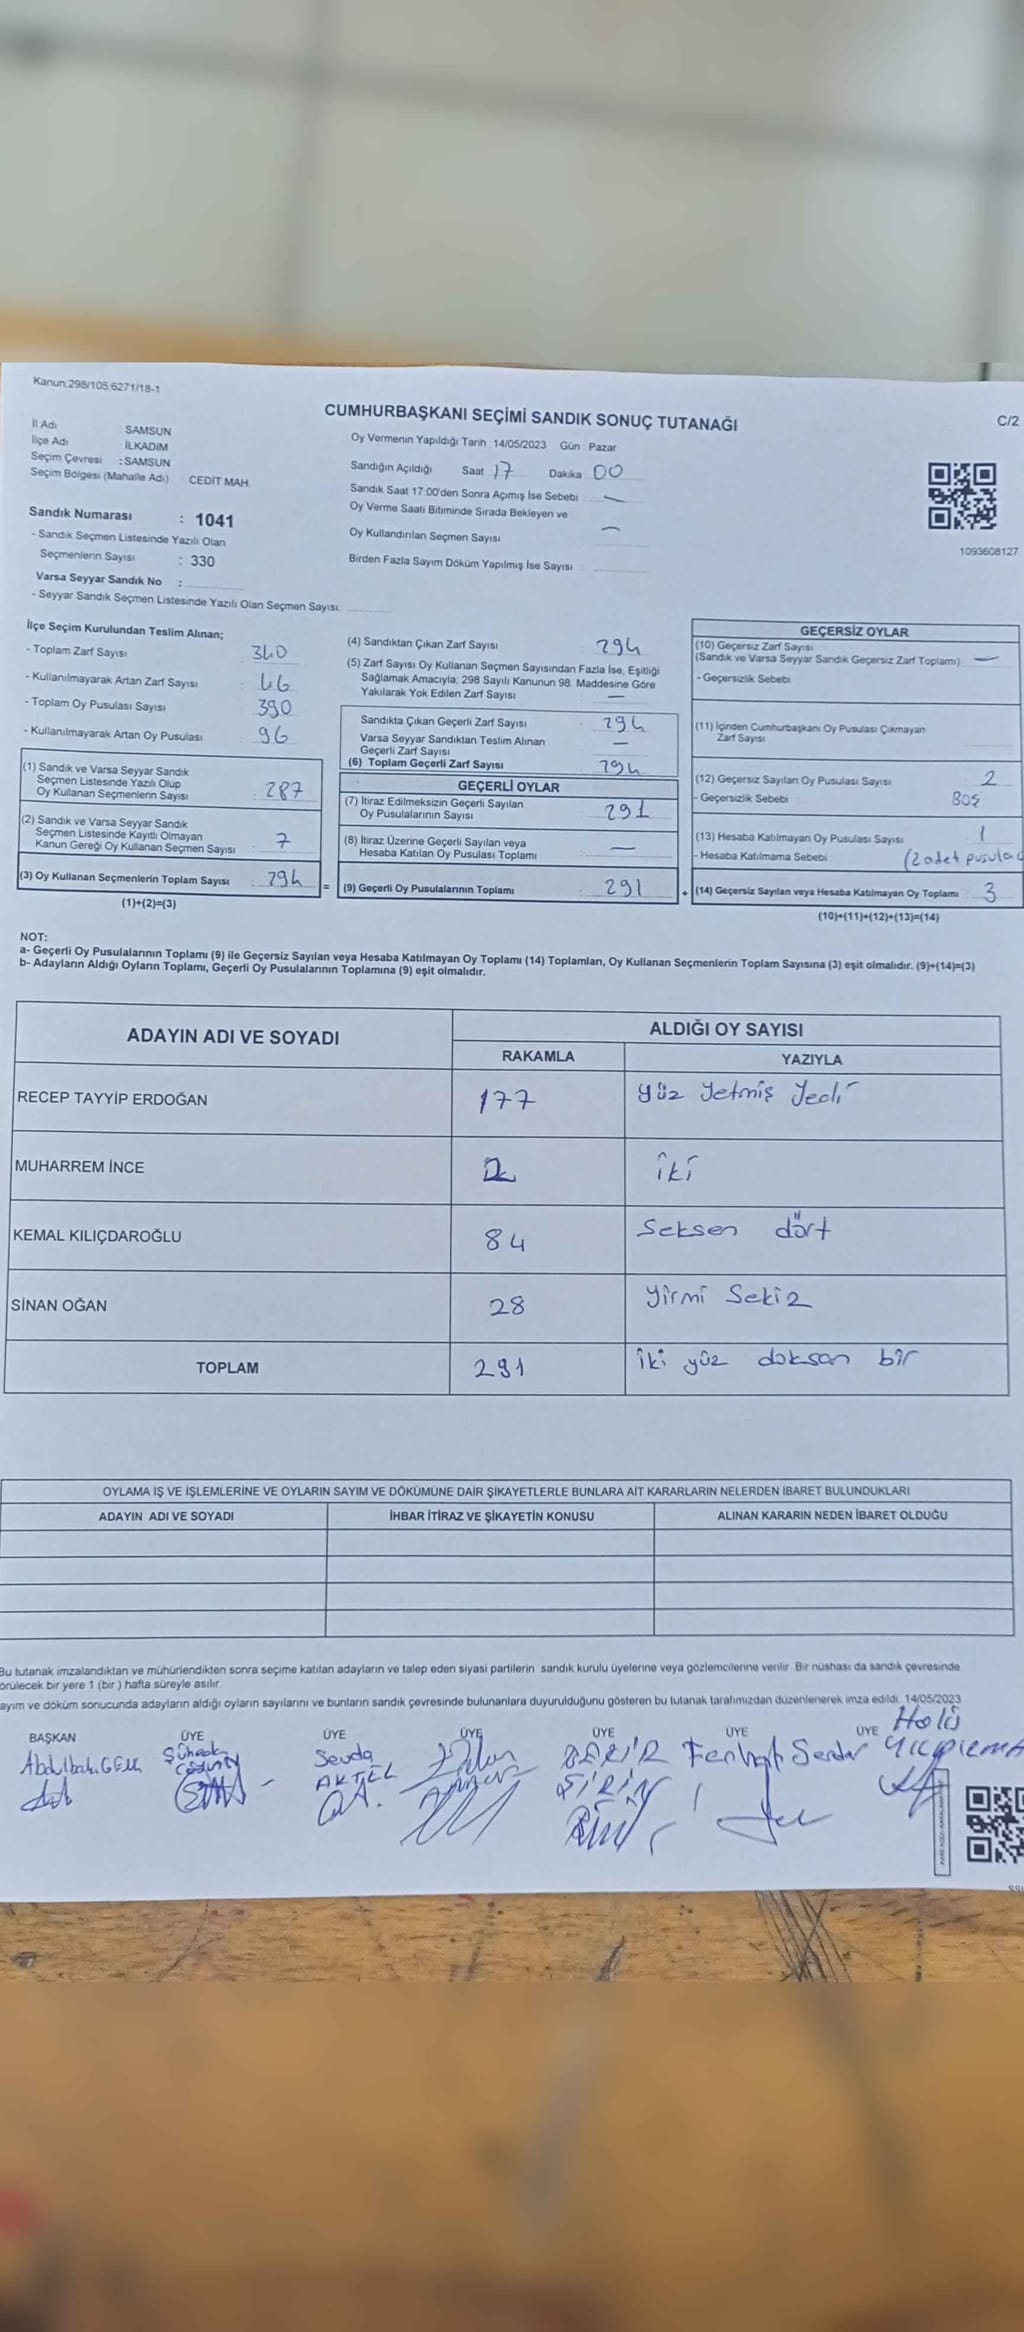 Kanun;298/105,6271/18-1
CUMHURBAŞKANI SEÇİMİ SANDIK SONUÇ TUTANAĞI
C/2
İl Adı : SAMSUN
İlçe Adı : İLKADIM
Seçim Çevresi : SAMSUN
Seçim Bölgesi (Mahalle Adı) : CEDİT MAH.
Oy Vermenin Yapıldığı Tarih : 14/05/2023 Gün : Pazar
Sandığın Açıldığı Saat 17 Dakika 00
Sandık Saat 17:00'den Sonra Açımış İse Sebebi —
Oy Verme Saati Bitiminde Sırada Bekleyen ve
Oy Kullandırılan Seçmen Sayısı —
Birden Fazla Sayım Döküm Yapılmış İse Sayısı
1093608127
Sandık Numarası : 1041
- Sandık Seçmen Listesinde Yazılı Olan
Seçmenlerin Sayısı : 330
Varsa Seyyar Sandık No :
- Seyyar Sandık Seçmen Listesinde Yazılı Olan Seçmen Sayısı:
İlçe Seçim Kurulundan Teslim Alınan;
- Toplam Zarf Sayısı : 340
- Kullanılmayarak Artan Zarf Sayısı : 46
- Toplam Oy Pusulası Sayısı : 390
- Kullanılmayarak Artan Oy Pusulası : 96
(1) Sandık ve Varsa Seyyar Sandık
Seçmen Listesinde Yazılı Olup
Oy Kullanan Seçmenlerin Sayısı : 287
(2) Sandık ve Varsa Seyyar Sandık
Seçmen Listesinde Kayıtlı Olmayan
Kanun Gereği Oy Kullanan Seçmen Sayısı : 7
(3) Oy Kullanan Seçmenlerin Toplam Sayısı : 294
(1)+(2)=(3)
(4) Sandıktan Çıkan Zarf Sayısı : 294
(5) Zarf Sayısı Oy Kullanan Seçmen Sayısından Fazla İse, Eşitliği
Sağlamak Amacıyla; 298 Sayılı Kanunun 98. Maddesine Göre
Yakılarak Yok Edilen Zarf Sayısı —
Sandıkta Çıkan Geçerli Zarf Sayısı : 294
Varsa Seyyar Sandıktan Teslim Alınan
Geçerli Zarf Sayısı —
(6) Toplam Geçerli Zarf Sayısı : 294
GEÇERLİ OYLAR
(7) İtiraz Edilmeksizin Geçerli Sayılan
Oy Pusulalarının Sayısı : 291
(8) İtiraz Üzerine Geçerli Sayılan veya
Hesaba Katılan Oy Pusulası Toplamı —
= (9) Geçerli Oy Pusulalarının Toplamı : 291
GEÇERSİZ OYLAR
(10) Geçersiz Zarf Sayısı
(Sandık ve Varsa Seyyar Sandık Geçersiz Zarf Toplamı) —
- Geçersizlik Sebebi
(11) İçinden Cumhurbaşkanı Oy Pusulası Çıkmayan
Zarf Sayısı
(12) Geçersiz Sayılan Oy Pusulası Sayısı 2
- Geçersizlik Sebebi BOŞ
(13) Hesaba Katılmayan Oy Pusulası Sayısı 1
- Hesaba Katılmama Sebebi (2 adet pusula
+ (14) Geçersiz Sayılan veya Hesaba Katılmayan Oy Toplamı 3
(10)+(11)+(12)+(13)=(14)
NOT:
a- Geçerli Oy Pusulalarının Toplamı (9) ile Geçersiz Sayılan veya Hesaba Katılmayan Oy Toplamı (14) Toplamları, Oy Kullanan Seçmenlerin Toplam Sayısına (3) eşit olmalıdır. (9)+(14)=(3)
b- Adayların Aldığı Oyların Toplamı, Geçerli Oy Pusulalarının Toplamına (9) eşit olmalıdır.
ADAYIN ADI VE SOYADI ALDIĞI OY SAYISI
RAKAMLA YAZIYLA
RECEP TAYYİP ERDOĞAN 177 yüz yetmiş yedi
MUHARREM İNCE 2 iki
KEMAL KILIÇDAROĞLU 84 Seksen dört
SİNAN OĞAN 28 yirmi Sekiz
TOPLAM 291 iki yüz doksan bir
OYLAMA İŞ VE İŞLEMLERİNE VE OYLARIN SAYIM VE DÖKÜMÜNE DAİR ŞİKAYETLERLE BUNLARA AİT KARARLARIN NELERDEN İBARET BULUNDUKLARI
ADAYIN ADI VE SOYADI İHBAR İTİRAZ VE ŞİKAYETİN KONUSU ALINAN KARARIN NEDEN İBARET OLDUĞU
Bu tutanak imzalandıktan ve mühürlendikten sonra seçime katılan adayların ve talep eden siyasi partilerin sandık kurulu üyelerine veya gözlemcilerine verilir. Bir nüshası da sandık çevresinde
örülecek bir yere 1 (bir ) hafta süreyle asılır.
ayım ve döküm sonucunda adayların aldığı oyların sayılarını ve bunların sandık çevresinde bulunanlara duyurulduğunu gösteren bu tutanak tarafımızdan düzenlenerek imza edildi. 14/05/2023
BAŞKAN ÜYE ÜYE ÜYE ÜYE ÜYE ÜYE
Sevda
AKTEL
ŞİRİN
Serdar